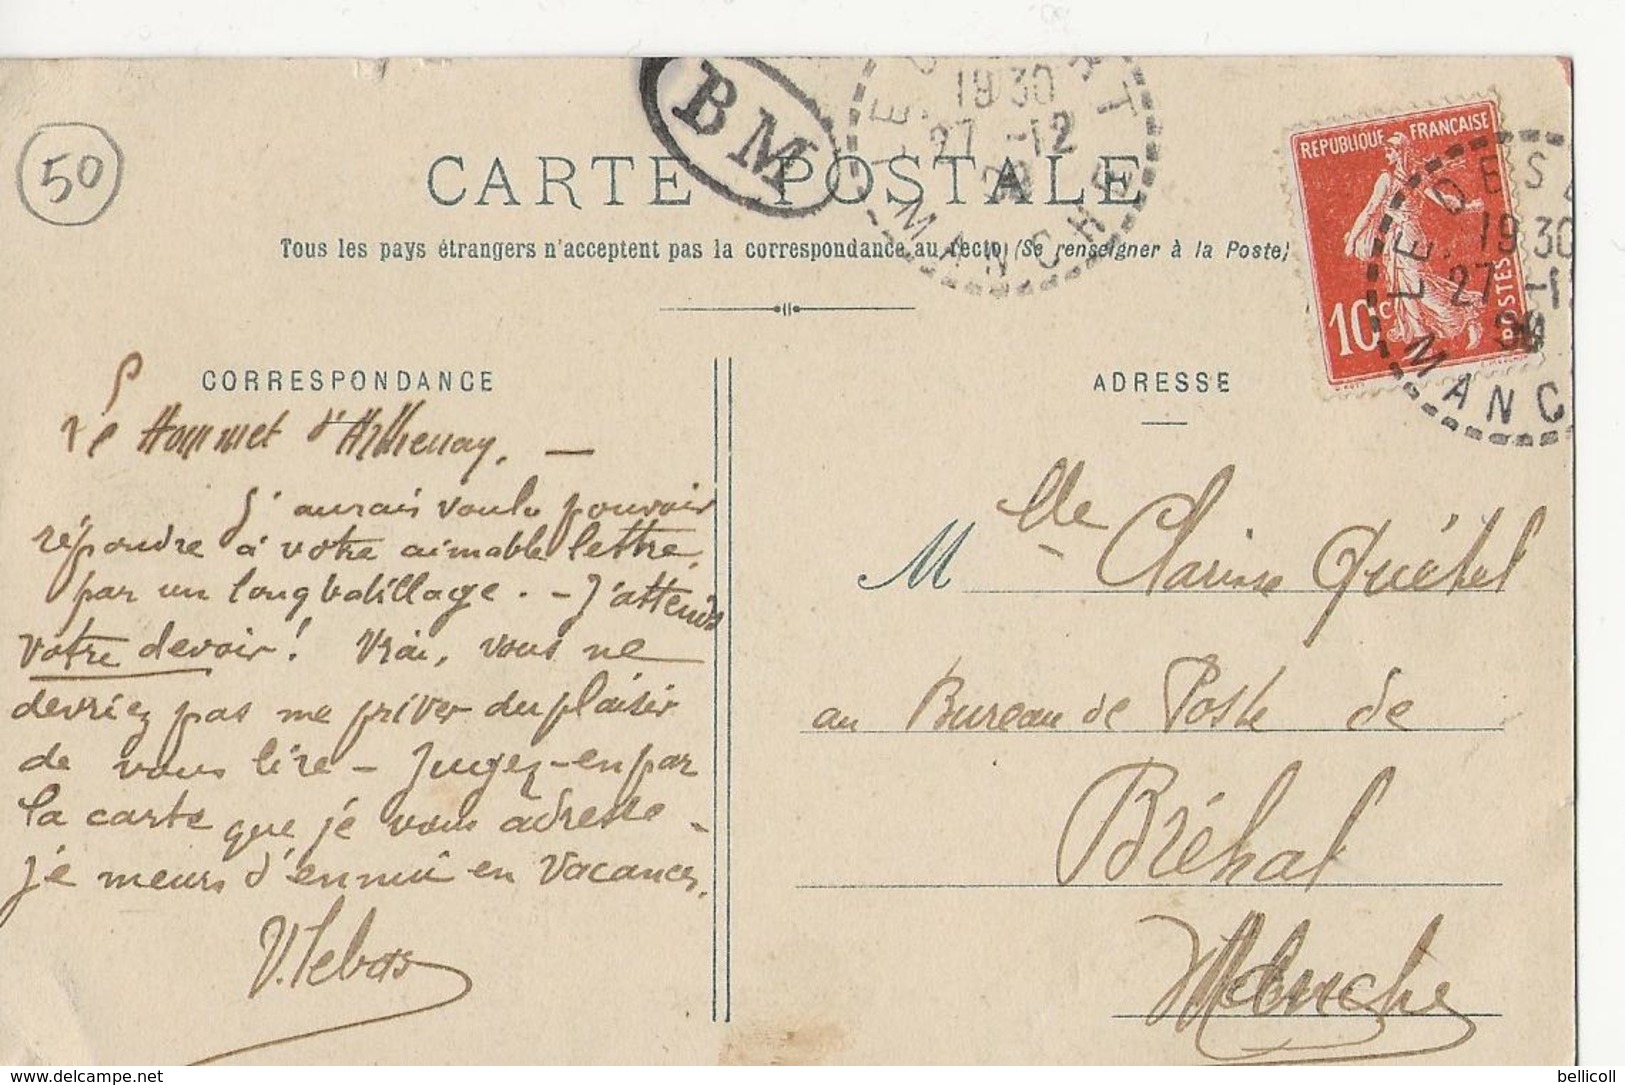 50
BM
19 30
27 -12
MANCHE
CARTE POSTALE
Tous les pays étrangers n'acceptent pas la correspondance au recto (Se renseigner à la Poste)
REPUBLIQUE FRANÇAISE
10c
POSTES
LE DESE
19 30
27 -1
MANC
CORRESPONDANCE
Le Hommet d'Arthenay. —
J'aurais voulu pouvoir
répondre à votre aimable lettre,
par un long babillage. - J'attends
votre devoir! Vrai, vous ne
devriez pas me priver du plaisir
de vous lire - Jugez-en par
la carte que je vous adresse -
je meurs d'ennui en vacances.
V. Lebas
ADRESSE
Mlle Clarisse Quétel
au Bureau de Poste de
Bréhal
Manche
delcampe.net
bellicoll